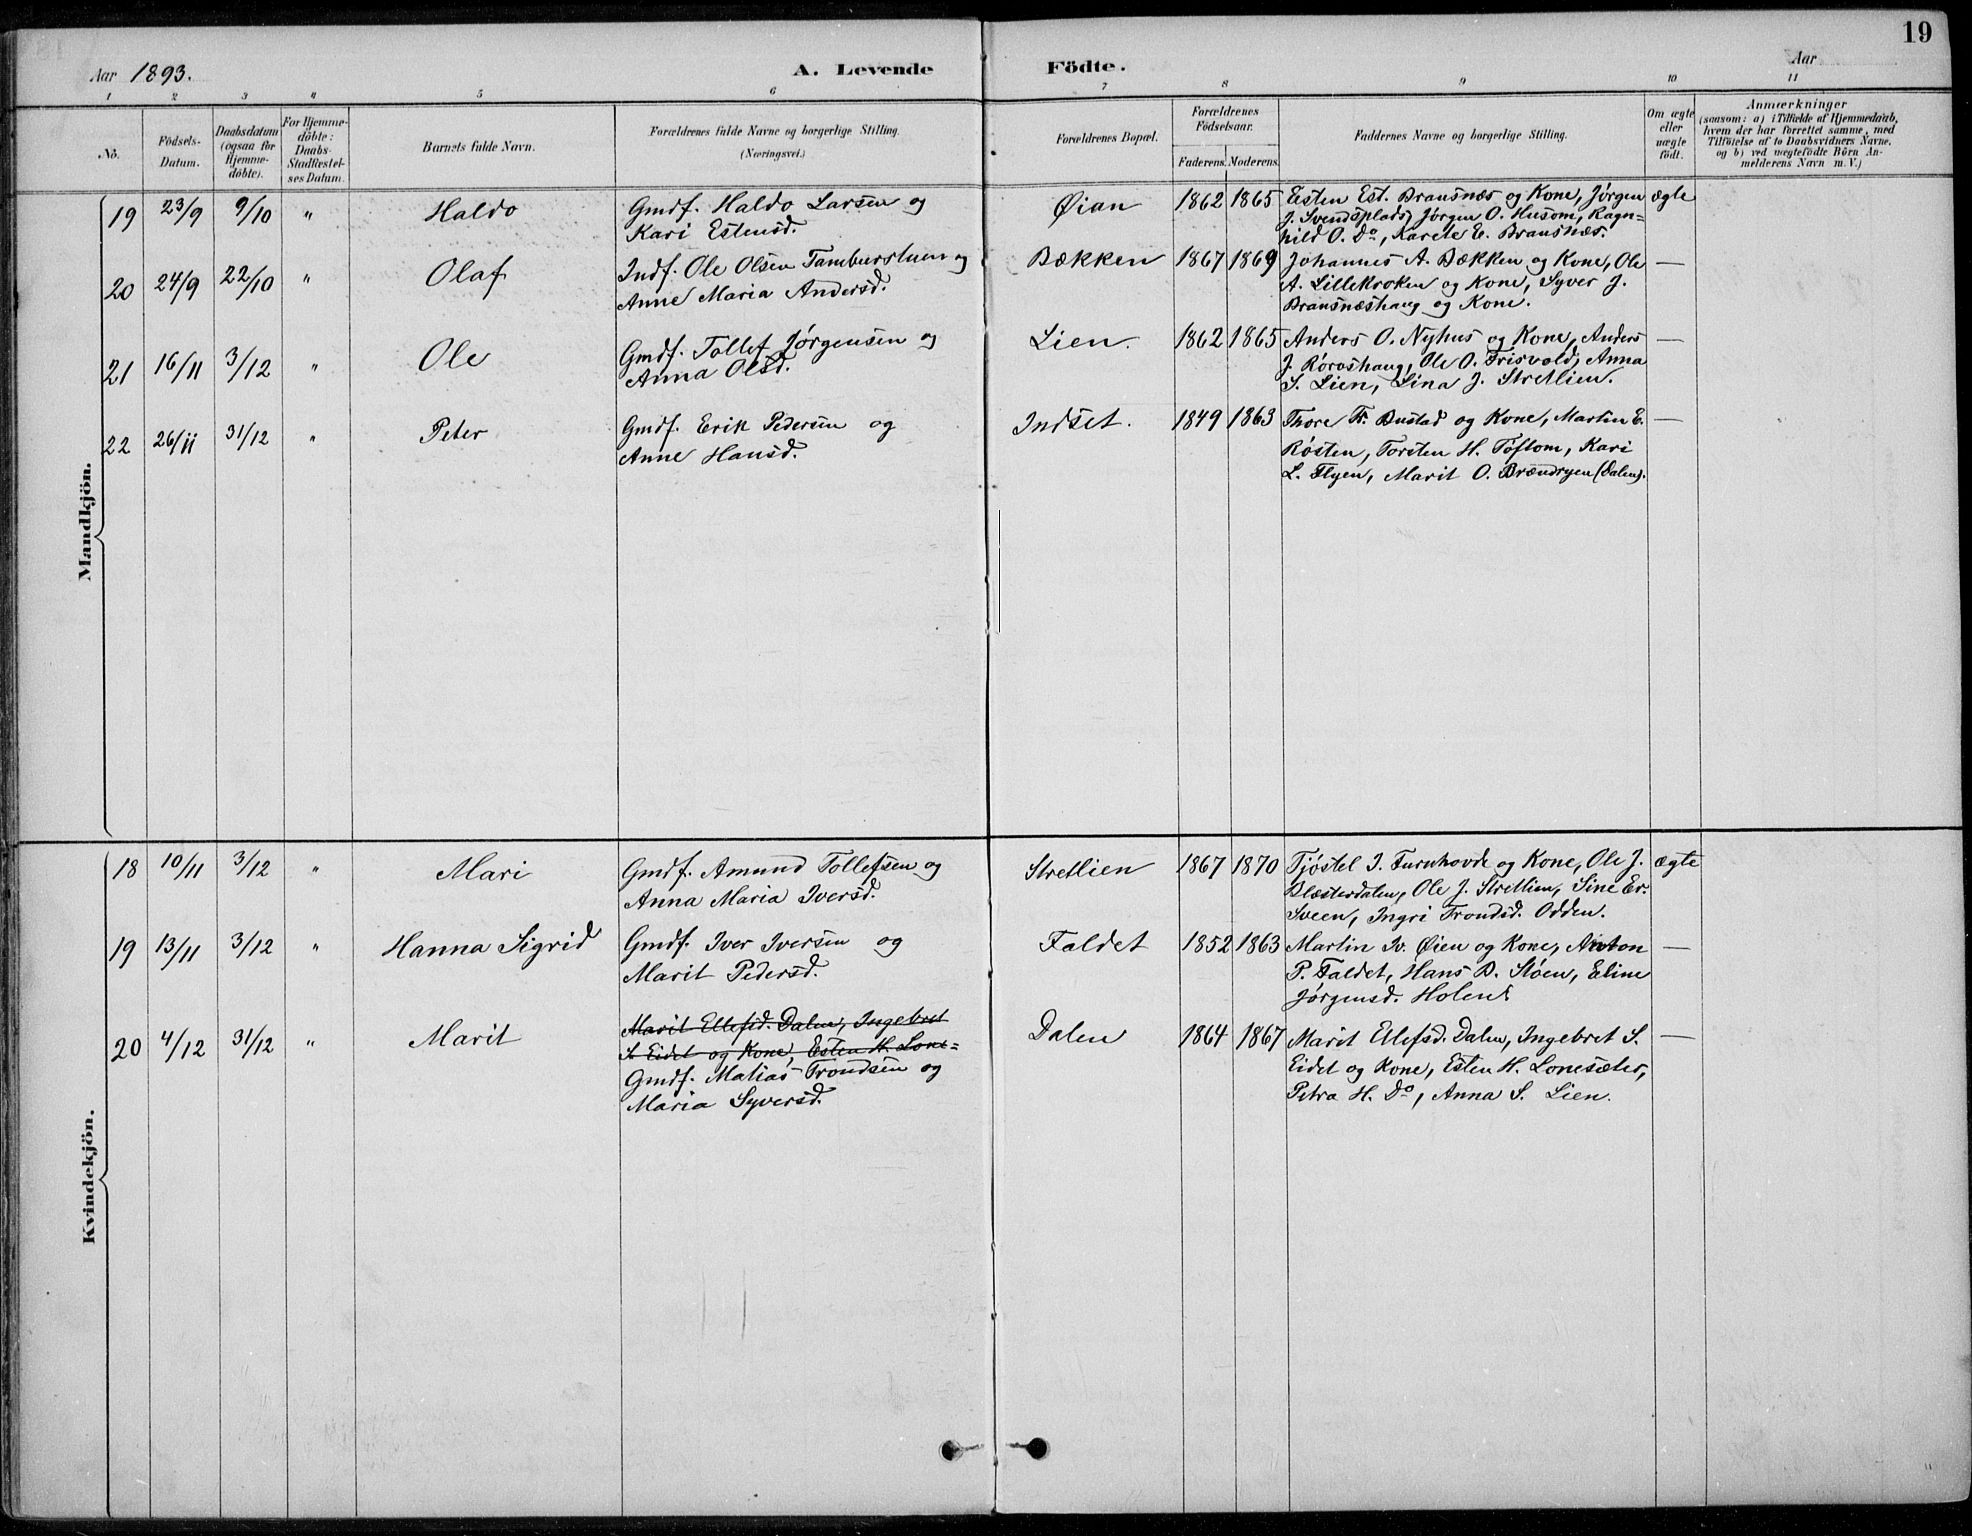 19
Aar 1893.
A. Levende Födte.
Aar
1 2 3 4 5 6 7 8 9 10 11
No.
Födsels-
Datum.
Daabsdatum
(ogsaa for
Hjemme-
döbte).
For Hjemme-
döbte:
Daabs-
Stadfæstel-
ses Datum.
Barnets fulde Navn.
Forældrenes fulde Navne og borgerlige Stilling.
(Næringsvei.)
Forældrenes Bopæl.
Forældrenes
Födselsaar.
Faderens. Moderens.
Faddernes Navne og borgerlige Stilling.
Om ægte
eller
uægte
födt.
Anmærkninger
(saasom: a) i Tilfælde af Hjemmedaab,
hvem der har forrettet samme, med
Tilföielse af to Daabsvidners Navne,
og b) ved uægtefödte Börn An-
melderens Navn m. V.)
Mandkjön.
19 23/9 9/10 " Haldo
Gmdf. Haldo Larsen og
Kari Estensd.
Øian 1862 1865
Esten Est. Bransnæs og Kone, Jørgen
J. Svendsplads, Jørgen O. Husom, Ragn=
hild O. Do, Karele E. Bransnæs.
ægte
20 24/9 22/10 " Olaf
Indf. Ole Olsen Tamburstuen og
Anne Maria Andersd.
Bækken 1867 1869
Johannes A. Bækken og Kone, Ole
A. Lillekroken og Kone, Syver J.
Bransnæshaug og Kone.
—
21 16/11 3/12 " Ole
Gmdf. Tollef Jørgensen og
Anna Olsd.
Lien. 1862 1865
Anders O. Nyhus og Kone, Anders
J. Røroshaug, Ole O. Trisvold, Anna
S. Lien, Lina J. Stretlien.
—
22 26/11 31/12 " Peter
Gmdf. Erik Pedersen og
Anne Hansd.
Indset. 1849 1863
Thore Fr. Bustad og Kone, Martin E.
Røsten, Torsten H. Toftom, Kari
L. Flyen, Marit O. Brændryen (Dalen).
—
Kvindekjön.
18 10/11 3/12 " Mari
Gmdf. Amund Tollefsen og
Anna Maria Iversd.
Stretlien 1867 1870
Tjøstel I. Turnhovde og Kone, Ole J.
Blæsterdalen, Ole J. Stretlien, Sine Er.
Sveen, Ingri Trondsd. Odden.
ægte
19 13/11 3/12 " Hanna Sigrid
Gmdf. Iver Iversen og
Marit Pedersd.
Faldet 1852 1863
Martin Iv. Øien og Kone, Anton
P. Faldet, Hans B. Støen, Eline
Jørgensd. Holen.
—
20 4/12 31/12 " Marit
Marit Ellefsd. Dalen, Ingebret
S. Eidet og Kone, Esten H. Lone=
Gmdf. Matias Trondsen og
Maria Syversd.
Dalen 1864 1867
Marit Ellefsd. Dalen, Ingebret S.
Eidet og Kone, Esten H. Lonesæter,
Petra H. Do, Anna S. Lien.
—